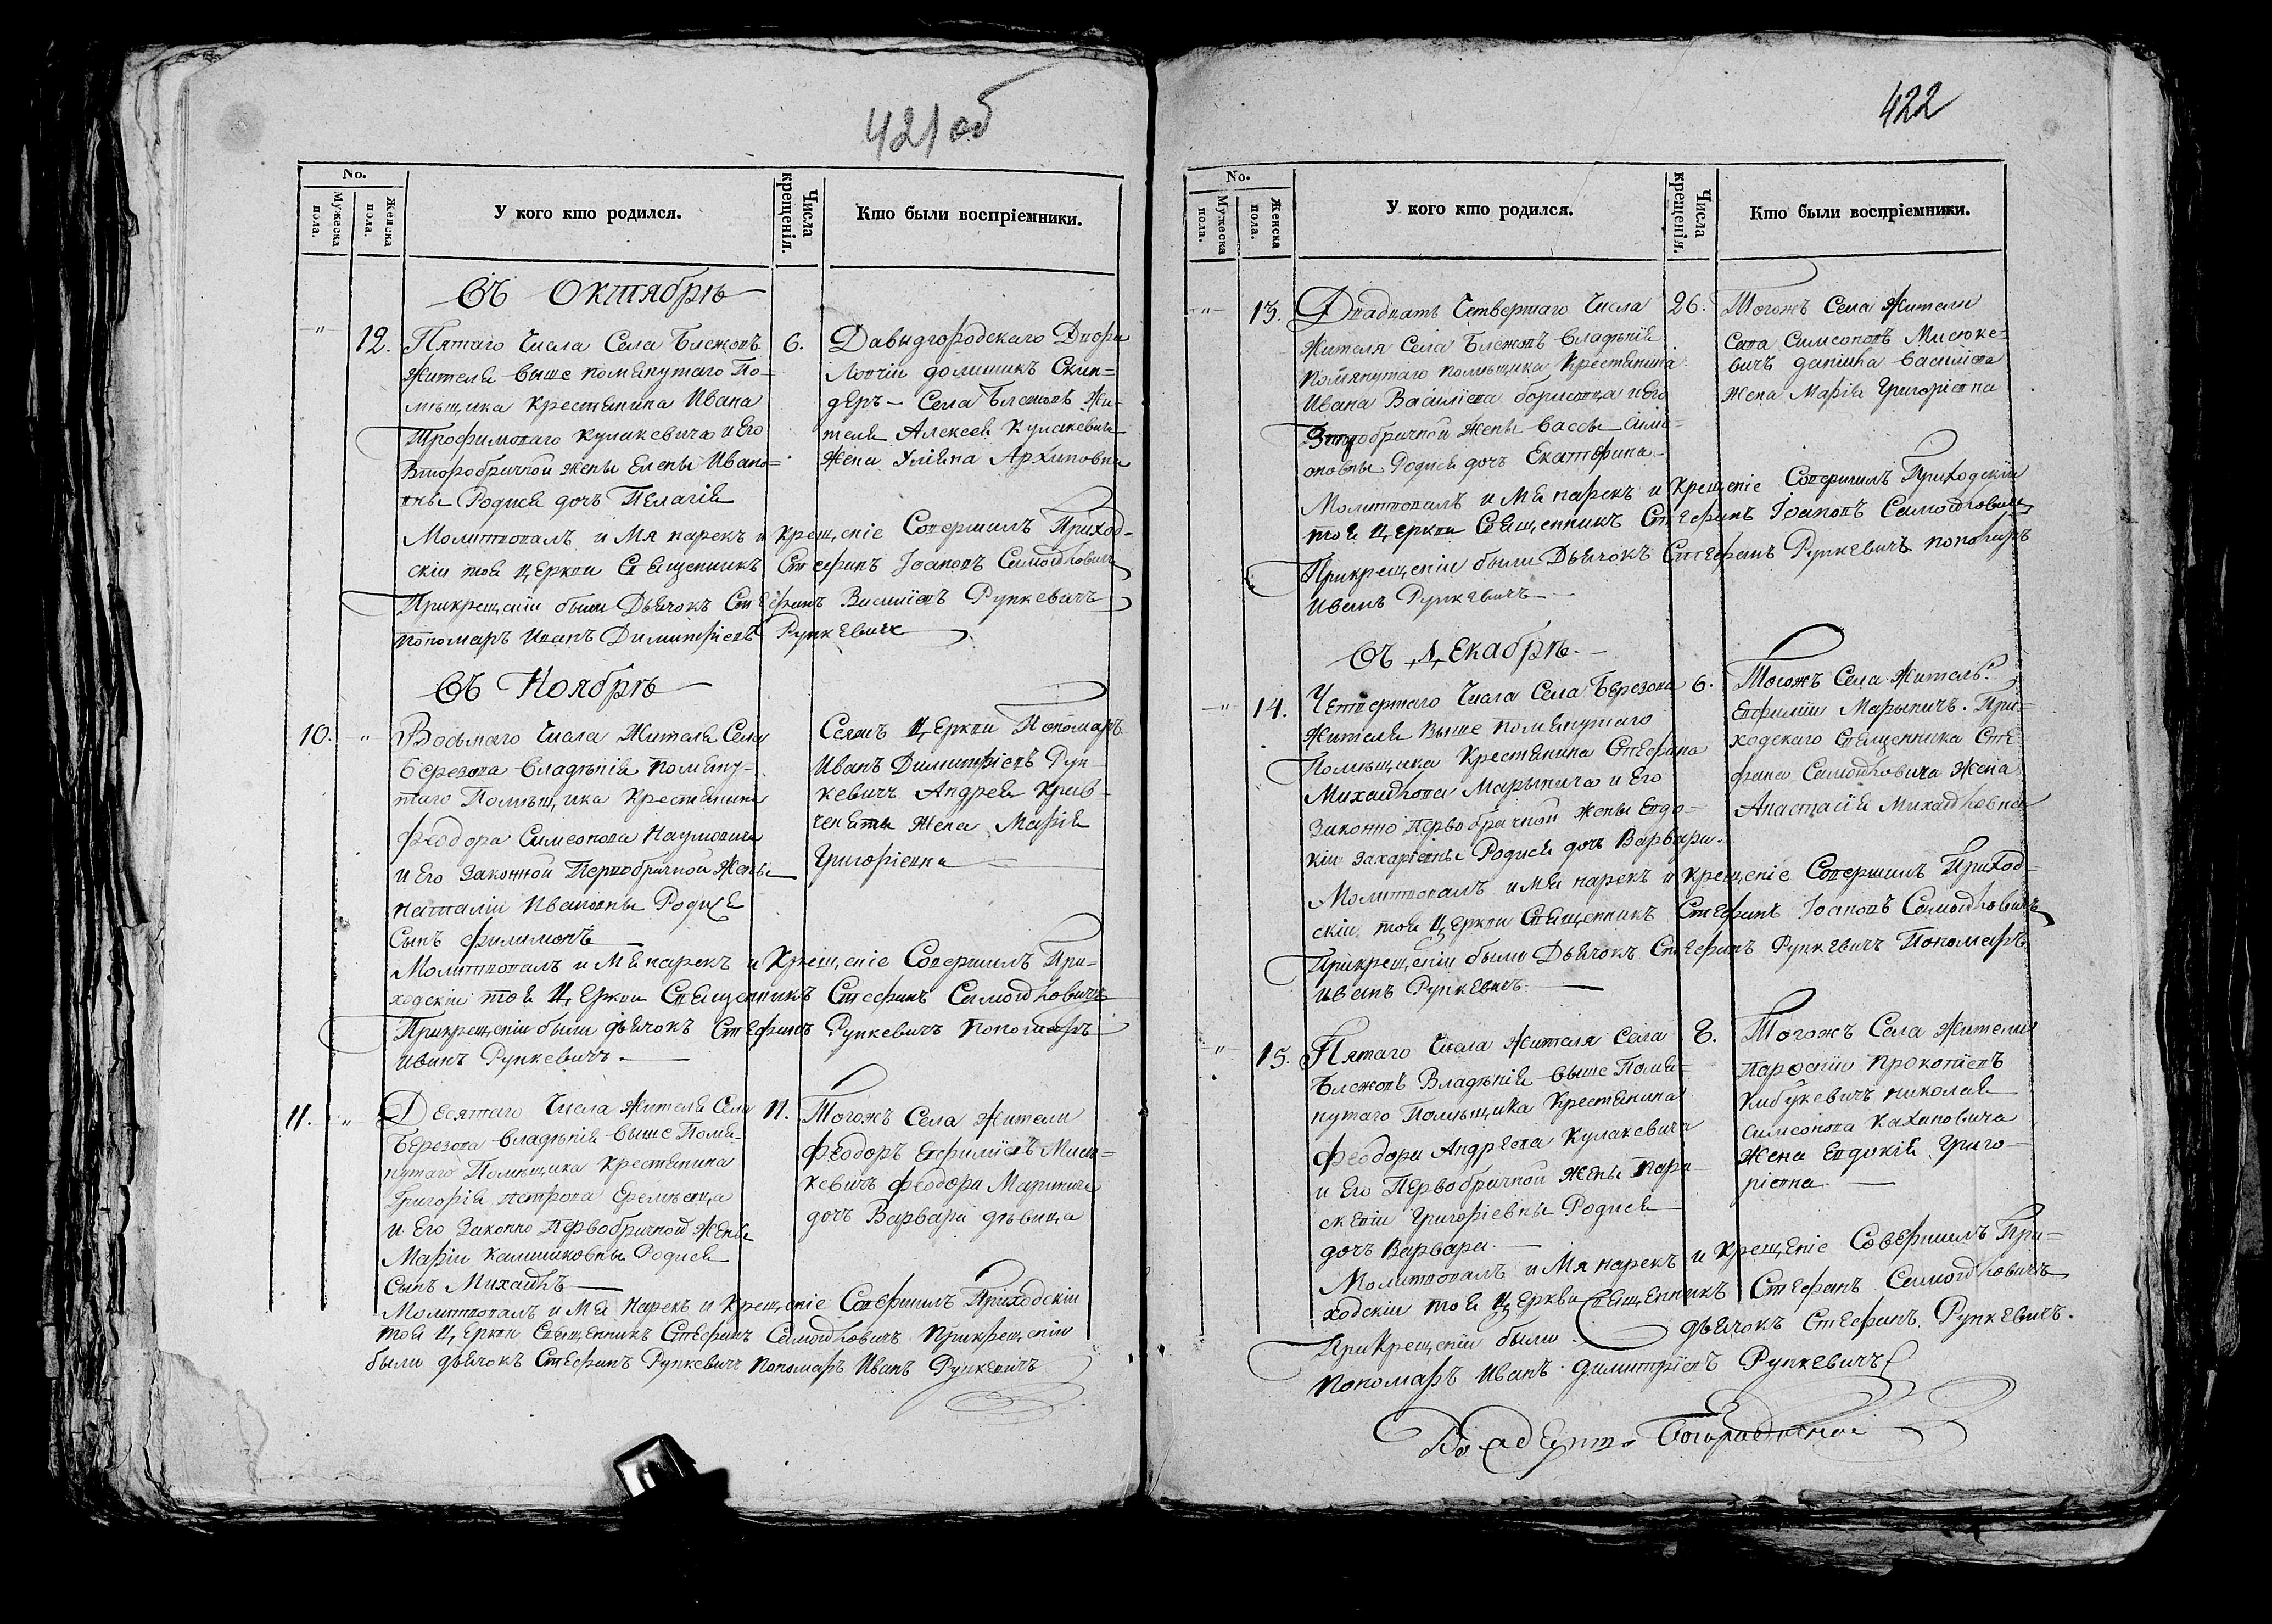 421 об
No.
Мужеска пола.
Женска пола.
У кого кто родился.
Числа крещенія.
Кто были воспріемники.
Въ Октябрѣ
12. Пятаго Числа Села Блежовъ
Жителя выше помянутаго По-
мѣщика Крестянина Ивана
Трофимоваго Кулакевича и Его
Второбрачной жены Елены Ивано=
вны Родися дочъ Пелагія
6. Давыдгородскаго Двора
Ловчіи
Села Блежовъ Жи-
теля Алексея Кулакевича
Жена Уліяна Архиповна
Молитвовалъ и Мя нарекъ и Крещеніе Совершилъ Приход-
скіи тоя Церкви Священникъ Стефанъ Іоановъ Самойловичъ
Прикрещеніи были Дьячокъ Стефанъ Василіевъ Рункевичъ
пономаръ Иванъ Димитріевъ Рункевичъ
Въ Ноябрѣ
10. Восьмаго Числа Жителя Села
Березова Владѣнія помяну-
таго Помѣщика Крестянина
Феодора Симеонова Наумовича
и Его Законной Первобрачной Жены
Наталіи Ивановны Родися
Сынъ Филимонъ
Сеяжъ Церкви Пономаръ
Иванъ Димитріевъ Рун-
кевичъ Андрея Крив-
Жена Марія
Григоріевна
Молитвовалъ и Мя нарекъ и Крещеніе Совершилъ При-
ходскіи тоя Церкви Священникъ Стефанъ Самойловичъ
Прикрещеніи были дьячокъ Стефанъ Рункевичъ пономаръ
Иванъ Рункевичъ.
11. Десятаго Числа Жителя Села
Березова владѣнія выше Помя-
нутаго Помѣщика Крестянина
Григорія Петрова Еремѣевца
и Его Законно Первобрачной Жены
Маріи Калиниковны Родися
Сынъ Михаилъ
11. Тогожъ Села Жители
Феодоръ Евфиміевъ Мисю=
кевичъ Феодора Маринича
дочъ Варвара дѣвица
Молитвовалъ и Мя Нарекъ и Крещеніе Совершилъ Приходскіи
тоя Церкви Священникъ Стефанъ Самойловичъ Прикрещеніи
были дьячокъ Стефанъ Рункевичъ пономаръ Иванъ Рункевичъ
422
No.
Мужеска пола.
Женска пола.
У кого кто родился.
Числа крещенія.
Кто были воспріемники.
13. Двадцать Четвертаго Числа
жителя Села Блежовъ Владѣнія
помянутаго помѣщика Крестянина
Ивана Василіева и Его
Второбрачной жены Вассы Симе-
оновны Родися дочъ Екатерина
26. Тогожъ Села Жители
Сава Симеоновъ Мисюке-
вичъ Василіева
Жена Марія Григоріевна
Молитвовалъ и Мя нарекъ и Крещеніе Совершилъ Приходскіи
тоя Церкви Священникъ Стефанъ Іоановъ Самойловичъ
Прикрещеніи были Дьячокъ Стефанъ Рункевичъ пономаръ
Иванъ Рункевичъ
Въ Декабрѣ.
14. Четвертаго Числа Села Березова
Жителя Выше помянутаго
Помѣщика Крестянина Стефана
Михайлова Марынича и Его
Законно Первобрачной жены Евдо-
кіи Захаріевны Родися дочъ Варвара.
6. Тогожъ Села Житель.
Евфиміи Марыничъ. При-
ходскаго Священника Сте-
фана Самойловича Жена
Анастасія Михайловна
Молитвовалъ и Мя нарекъ и Крещеніе Совершилъ Приход-
скіи тоя Церкви Священникъ Стефанъ Іоановъ Самойловичъ
Прикрещеніи были Дьячокъ Стефанъ Рункевичъ Пономаръ
Иванъ Рункевичъ.
15. Пятаго Числа Жителя Села
Блежовъ Владѣнія выше Помя-
нутаго Помѣщика Крестянина
Феодора Андреева Кулакевича
и Его Первобрачной Жены Пара-
скевіи Григоріевны Родися
дочъ Варвара.
8. Тогожъ Села Жители
Прокопіевъ
Николая
Симеонова Кахновича
Жена Евдокія Григо-
ріевна.
Молитвовалъ и Мя нарекъ и Крещеніе Совершилъ При-
ходскіи тоя Церкви Священникъ Стефанъ Самойловичъ
Прикрещеніи были дьячокъ Стефанъ Рункевичъ.
Пономаръ Иванъ Димитріевъ Рункевичъ